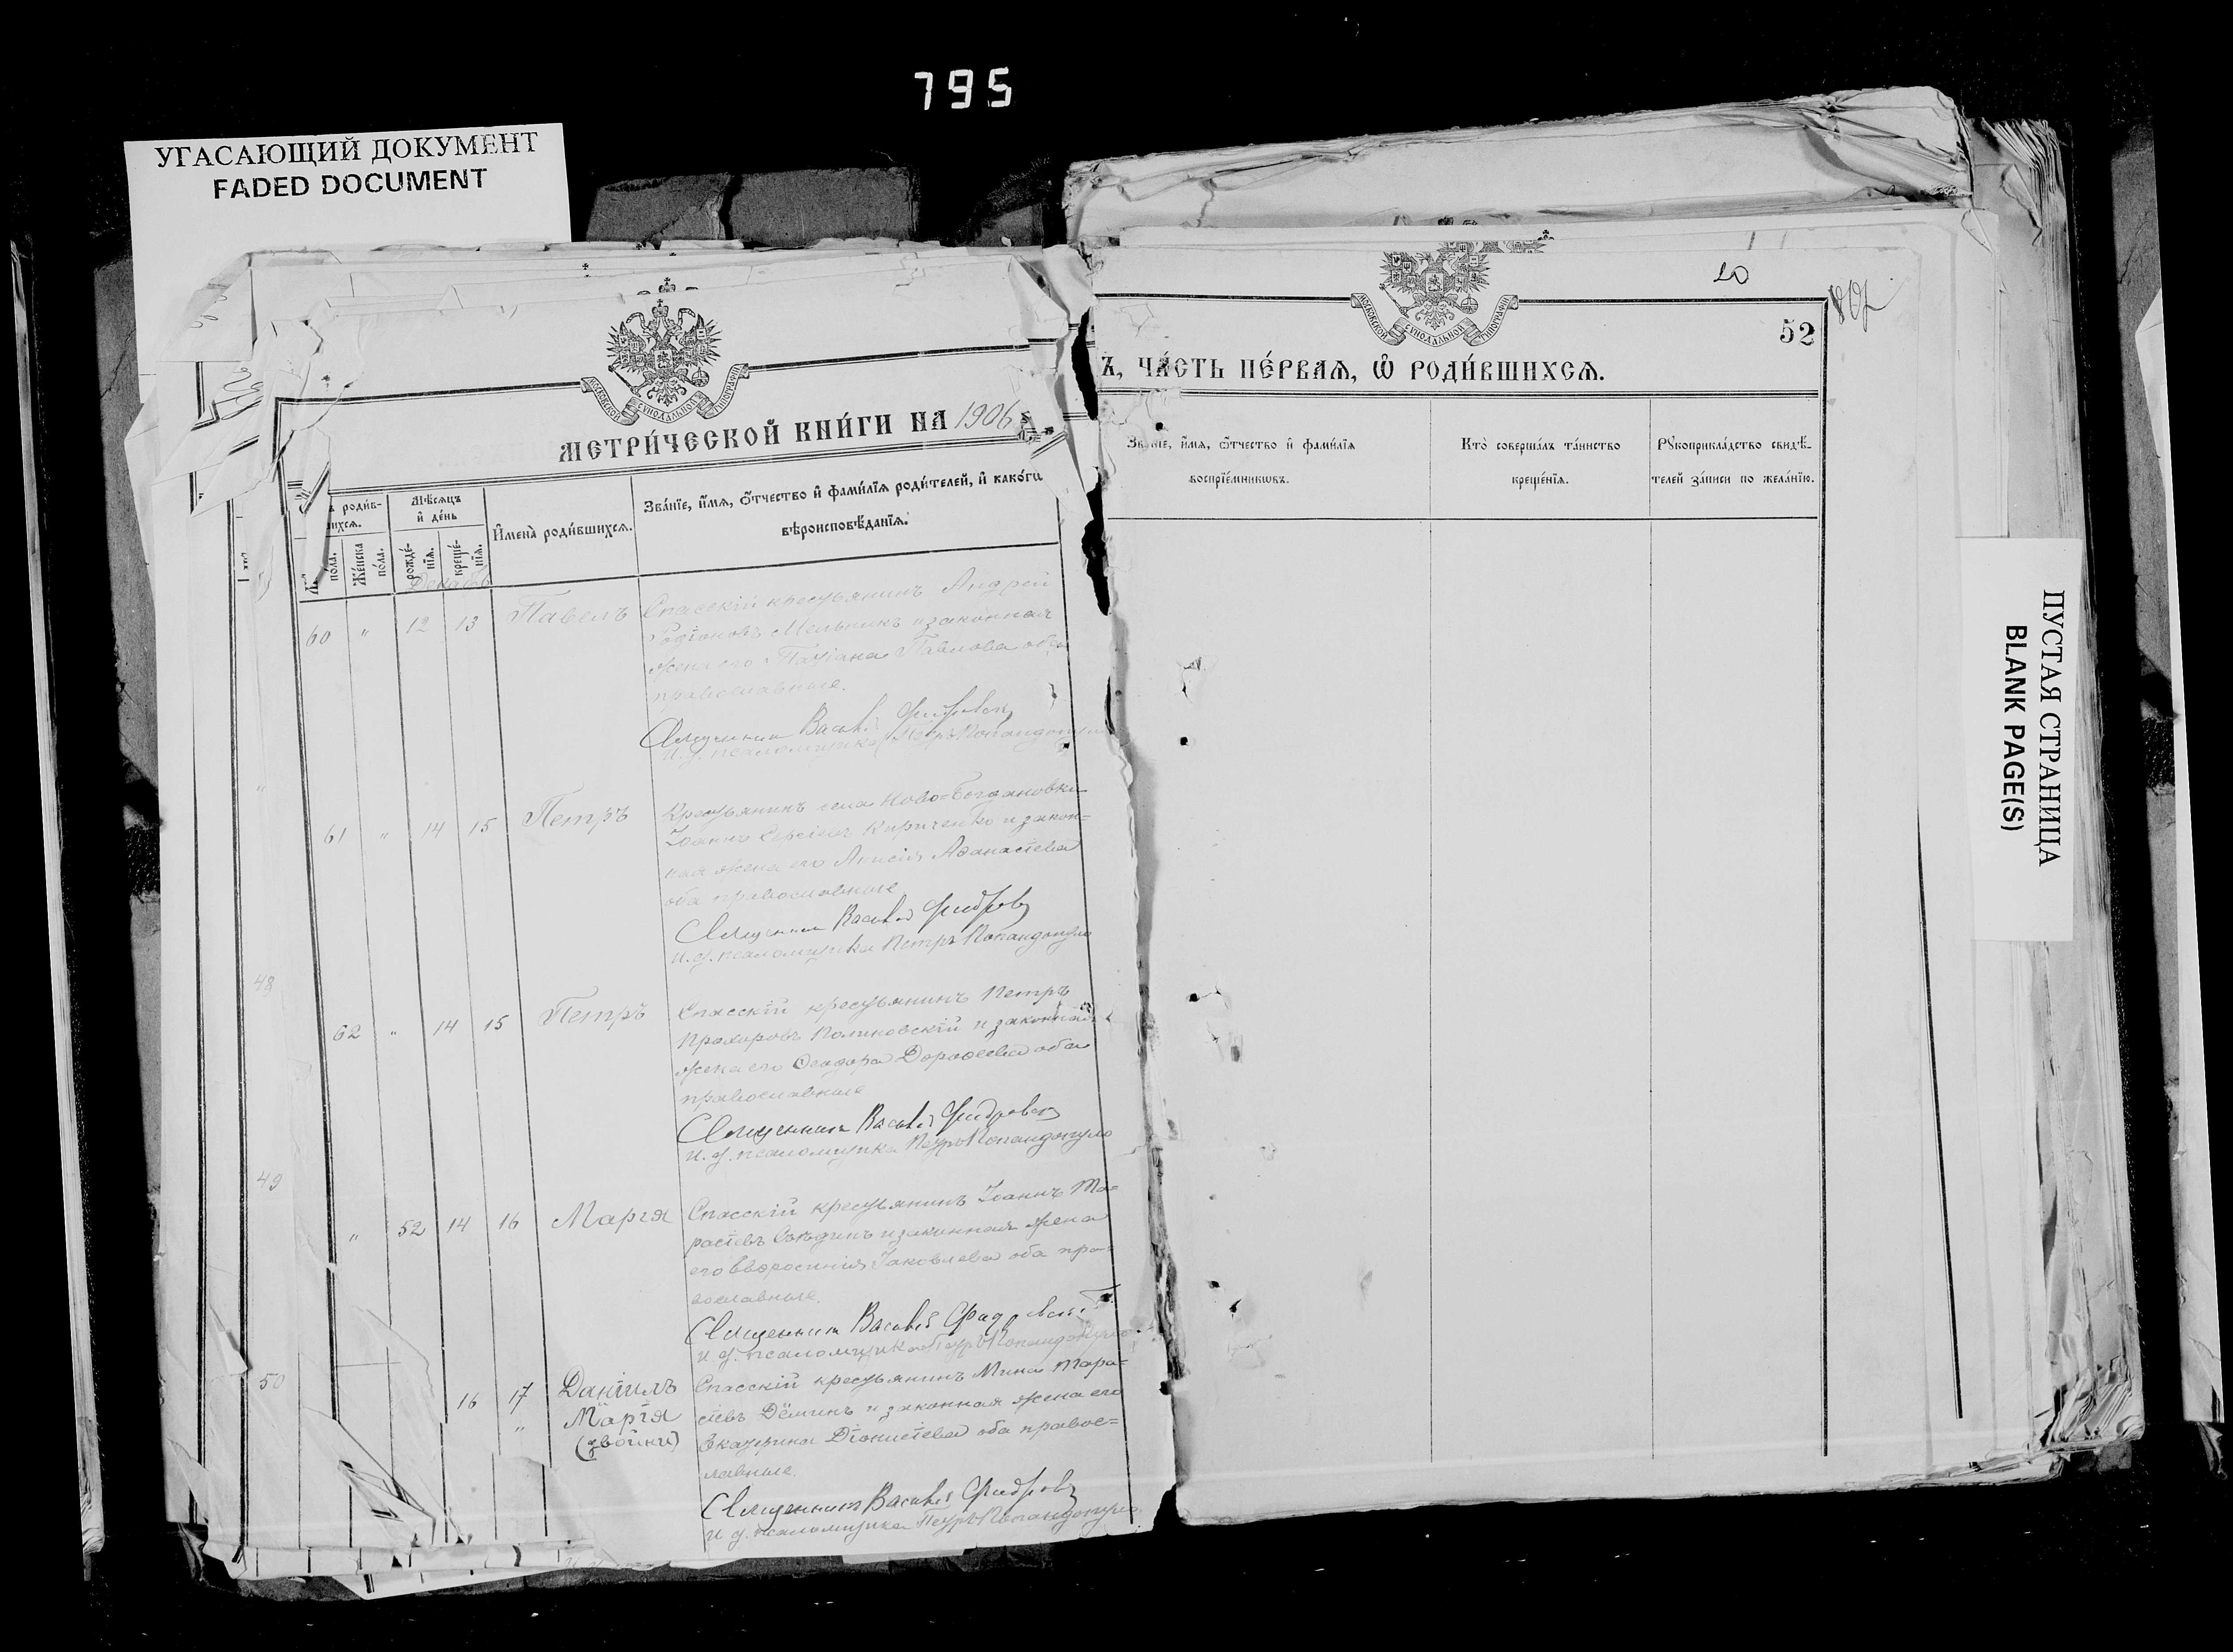 795
УГАСАЮЩИЙ ДОКУМЕНТ
FADED DOCUMENT
МОСКОВСКОЙ СѴНОДАЛЬНОЙ ТИПОГРАФІИ
МЕТРИ́ЧЕСКОЙ КНИ́ГИ НА 1906
роди́в-
шихсѧ.
Мѣ́сѧцъ
и҆ де́нь
пола.
Же́нска
по́ла.
рожде́-
нїѧ.
креще́-
нїѧ.
И҆мена̀ роди́вшихсѧ.
Зва́нїе, и҆́мѧ, ѻ҆́тчество и҆ фамѝлїѧ роди́телей, и҆ како́гѡ
вѣроисповѣ́данїѧ.
Декабрь
60 " 12 13 Павелъ Спасскій крестьянинъ Андрей
Родіоновъ Мельникъ и законная
жена его Татіана Павлова оба
православные.
Священникъ Василій
И. д. псаломщика Петръ Попандопуло
61 " 14 15 Петръ Крестьянинъ села Ново-Богдановки
Іоаннъ Сергіевъ Кириченко и закон=
ная жена его Анисія Аѳанасіева
оба православные
Священникъ Василій
И. д. псаломщика Петръ Попандопуло
48
62 " 14 15 Петръ Спасскій крестьянинъ Петръ
Прохоровъ Полиновскій и законная
жена его Ѳеодора Дороѳеева оба
православные
Священникъ Василій
И. д. псаломщика Петръ Попандопуло
49
" 52 14 16 Марія Спасскій крестьянинъ Іоаннъ Та=
расіевъ и законная жена
его Евфросинія Іаковлева оба пра=
вославные.
Священникъ Василій
И. д. псаломщика Петръ Попандопуло
50
16 17 Даніилъ Спасскій крестьянинъ Мина Тара=
" Марія сіевъ Дёминъ и законная жена его
(двойни) Екатерина Діонисіева оба правос=
лавные.
Священникъ Василій
И. д. псаломщика Петръ Попандопуло
20
МОСКОВСКОЙ СѴНОДАЛЬНОЙ ТИПОГРАФІИ
52
Ъ, ЧА́СТЬ ПЕ́РВАѦ, Ѽ РОДИ́ВШИХСѦ.
Зва́нїе, и҆́мѧ, ѻ҆́тчество и҆ фами́лїѧ
воспрїе́мникѡвъ.
Кто̀ соверша́лъ та́инство
креще́нїѧ.
Рꙋкоприкла́дство свидѣ́-
телей за́писи по жела́нїю.
ПУСТАЯ СТРАНИЦА
BLANK PAGE(S)